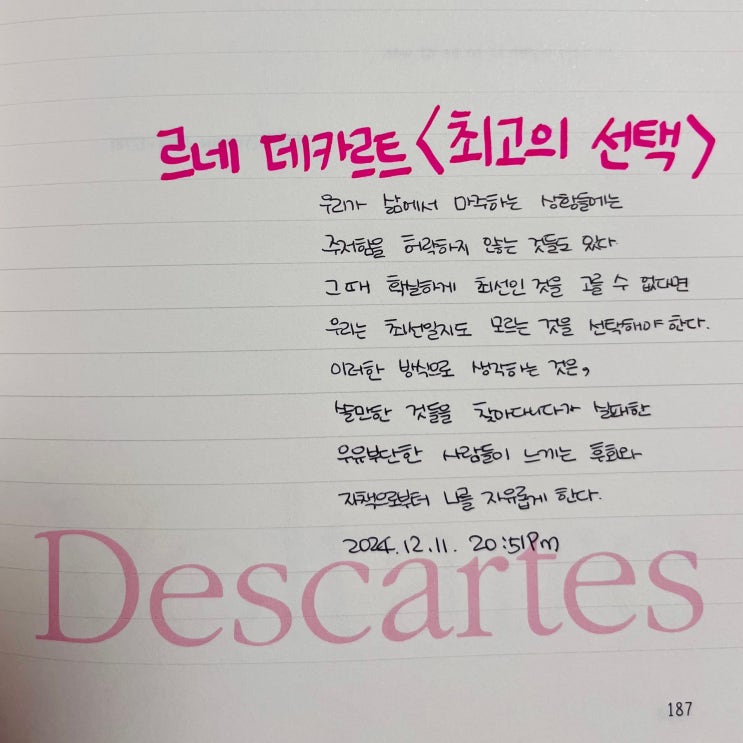 르네 데카르트 <최고의 선택>
우리가 삶에서 마주하는 상황들에는
주저함을 허락하지 않는 것들도 있다
그 때 확실하게 최선인 것을 고를 수 없다면
우리는 최선일지도 모르는 것을 선택해야 한다.
이러한 방식으로 생각하는 것은,
쓸만한 것들을 찾아다니다가 실패한
우유부단한 사람들이 느끼는 후회와
자책으로부터 나를 자유롭게 한다.
2024.12.11. 20:51PM
Descartes
187